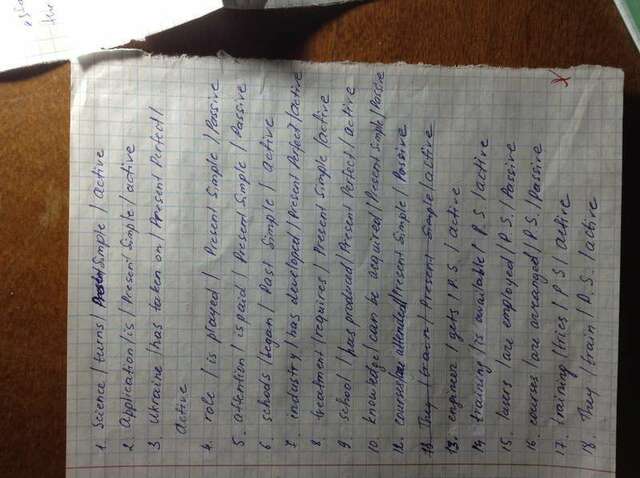 esso
the
1. Science / turns / Present Simple / active
2. Application / is / Present Simple / active
3. Ukraine / has taken on / Present Perfect /
active
4. role / is played / Present Simple / Passive
5. attention / is paid / Present Simple / Passive
6. schools / began / Past Simple / active
7. industry / has developed / Present Perfect / active
8. treatment / requires / Present Simple / active
9. school / has produced / Present Perfect / active
10. knowledge / can be acquired / Present Simple / Passive
12. courses / are attended / Present Simple / Passive
13. They / train / Present Simple / active
13. engineer / gets / P.S. / active
14. training / is available / P.S. / active
15. lasers / are employed / P.S. / Passive
16. courses / are arranged / P.S. / Passive
17. training / tries / P S / active
18. They / train / P.S. / active